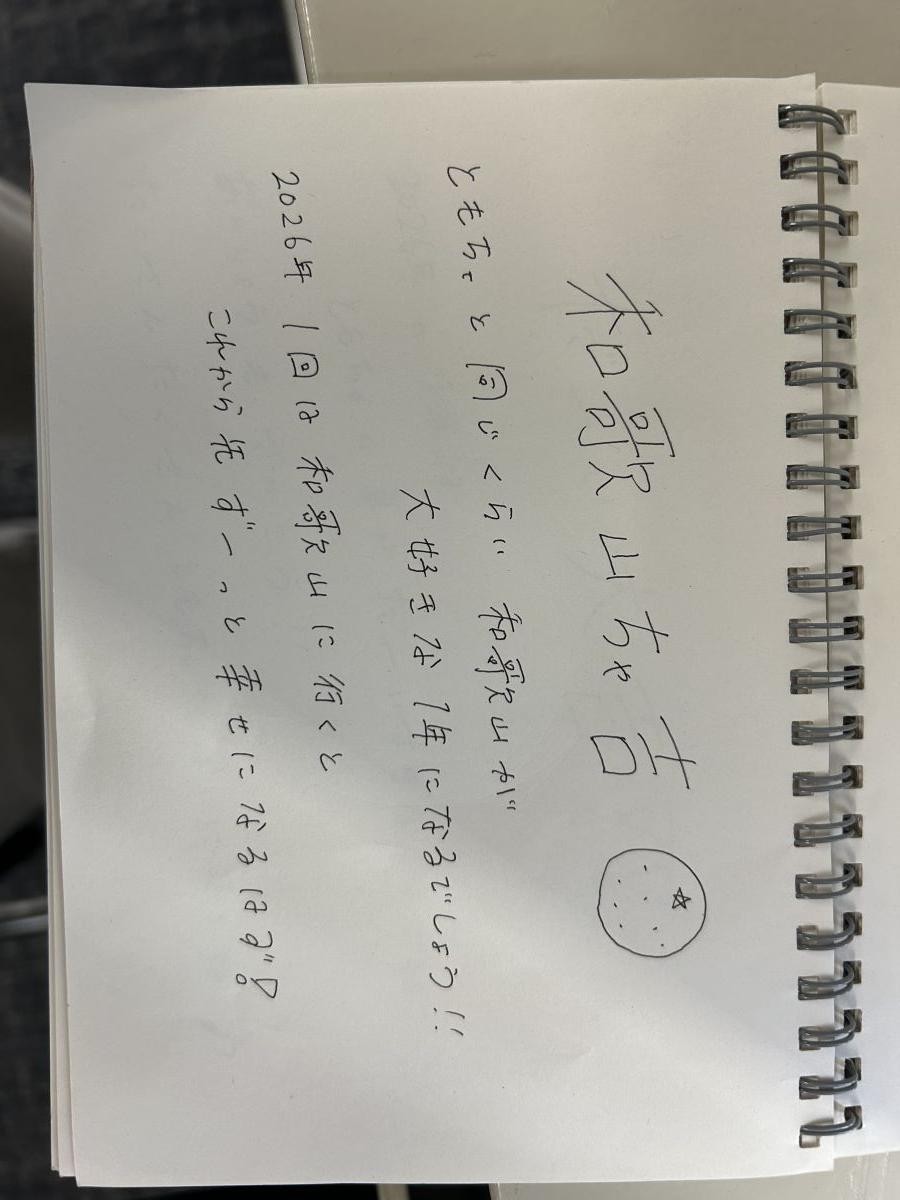 和歌山ちゃ吉
ともちゃと同じくらい 和歌山が
大好きな1年になるでしょう!!
2026年 1回は和歌山に行くと
これから先ずーっと幸せになるはず!